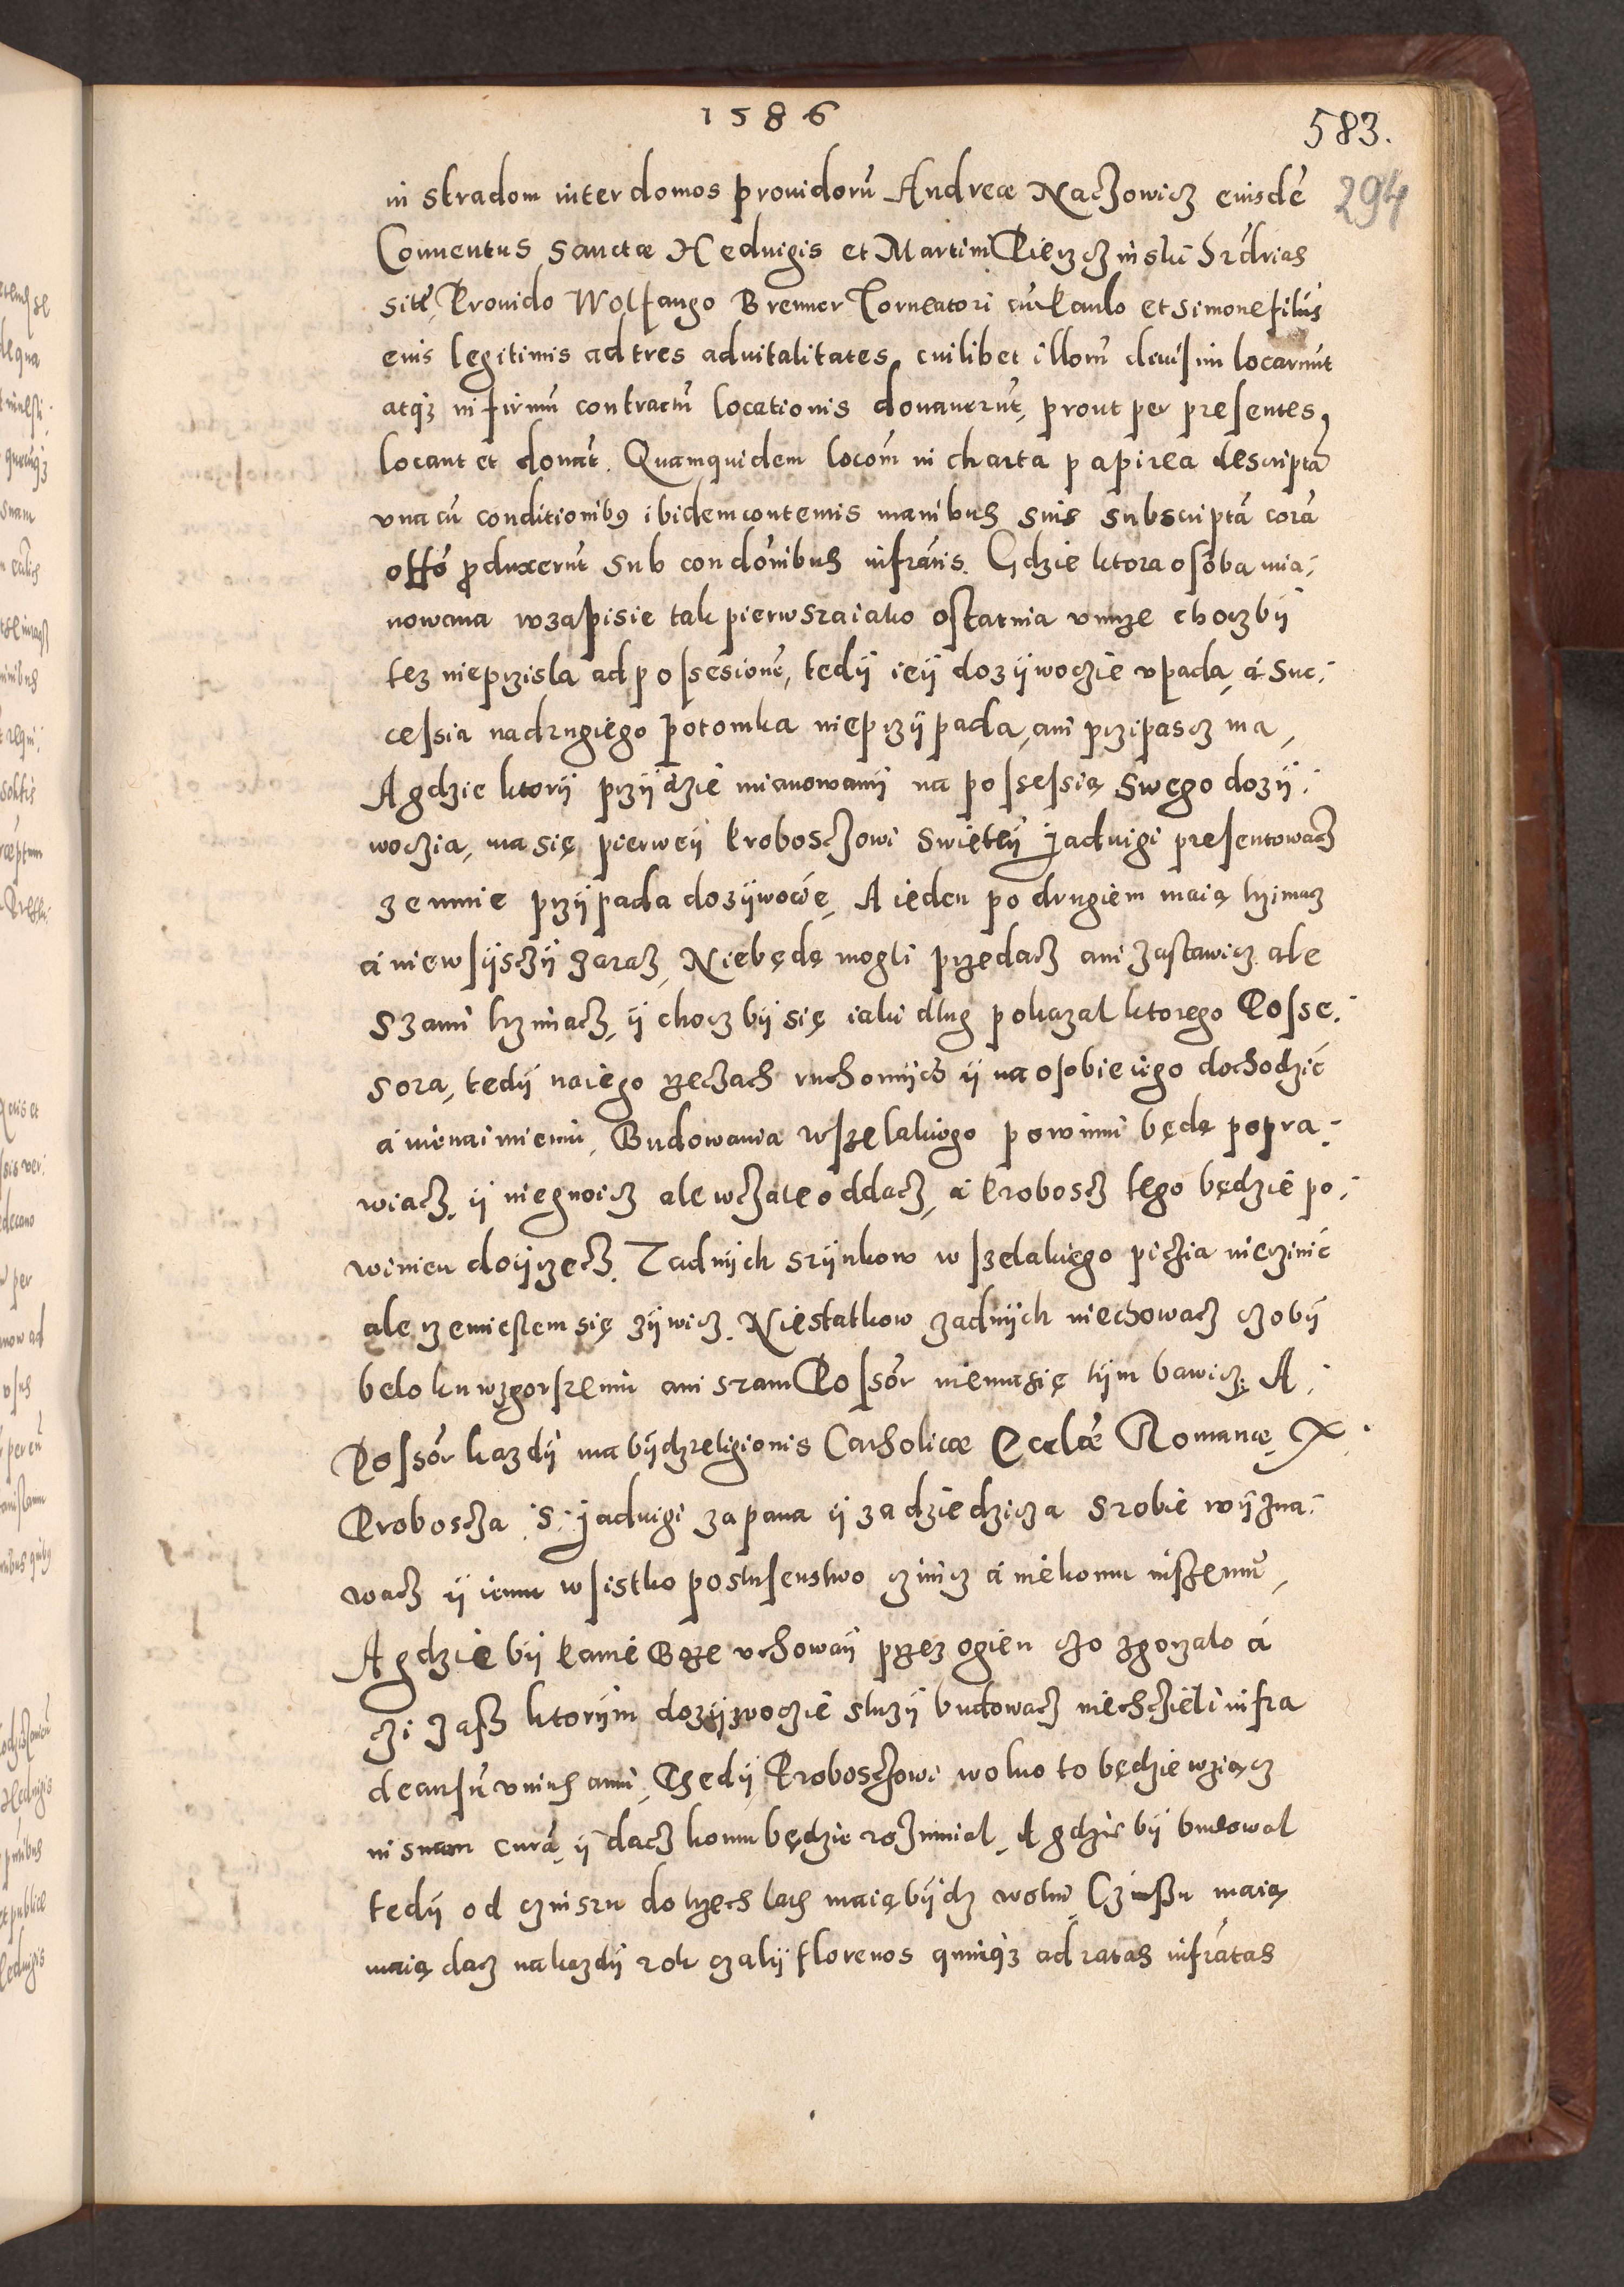 1586
583.
294
in stradom inter domos prouidorũ Andreæ Naczowicz eiusdẽ
Conuentus Sanctæ Heduigis et Martini Pierzchinski
sitẽ, Prouido Wolfango Brenner Torneatori cũ Paulo et Simone filiis
eius legitimis ad tres aduitalitates, cuilibet illorũ locarunt
atq3 in firmũ contractũ locationis donauerũt, prout per presentes,
locant et donãt. Quamquidem locõm in charta papirea descriptã
vna cũ conditionib9 ibidem contentis manibus suis subscriptã corã
offõ produxerũt sub condõnibus infrãtis. Gdzie ktora osoba mia-
nowana w zapisie tak pierwsza iako ostatnia vmrze choczbÿ
tez nie przisla ad possesionẽ, tedÿ ieÿ dozÿwoczie vpada, á Suc-
cessia na drugiego potomka nieprzÿpada, ani przipascz ma,
A gdzie ktorÿ przÿdzie mianowanÿ na possessią swego dozÿ-
woczia, ma się pierweÿ Proboszczowi Swiętÿ Jadwigi presentowacz
ze nmie przÿpada dozÿwocie, A ieden po drugiem maią trzimacz
á nie wsÿsczÿ zaraz, Nie będę mogli przedacz ani zastawicz ale
szami trzimacz, ÿ chocz bÿ się iaki dlug pokazal ktorego Posse-
sora, tedÿ na iego rzeczach ruchomÿch ÿ na osobie iego dochodzić
á nie na imieniu, Budowania wszelakiego powinni będę popra-
wiacz, ÿ nie gnoicz ale w czale oddacz, á Proboscz tego będzie po-
winien doÿrzecz. Zadnÿch szÿnkow wszelakiego piczia nie czinić
ale rzemiestem się zÿwicz. Niestatkow zadnÿch nie chowacz czobÿ
belo ku wzgorszeniu ani szam Possõr nie ma się tÿm bawicz. A
Possõr kazdÿ ma bÿdz religionis Catholicæ Ecclæ Romanæ,
Proboscza S. Jadwigi za pana ÿ za dziedzicza szobie wÿzna-
wacz ÿ iemu wsistko poslusenstwo czinicz á nie komu inszemu,
A gdzie bÿ Panie Boze vchowaÿ przez ogien czo zgorzalo á
czi zasz ktorÿm dozÿwoczie sluzÿ budowacz nie chczieli infra
decursũ vnius anni, Thedÿ Proboszczowi wolno to będzie wziącz
in suam curã, ÿ dacz komu będzie rozumial, A gdzie bÿ budowal
tedÿ od czinszu do trzech lath maią bÿdz wolni, Czinszu maią
maią dacz na kazdÿ rok czalÿ florenos quinq3 ad ratas infrãtas